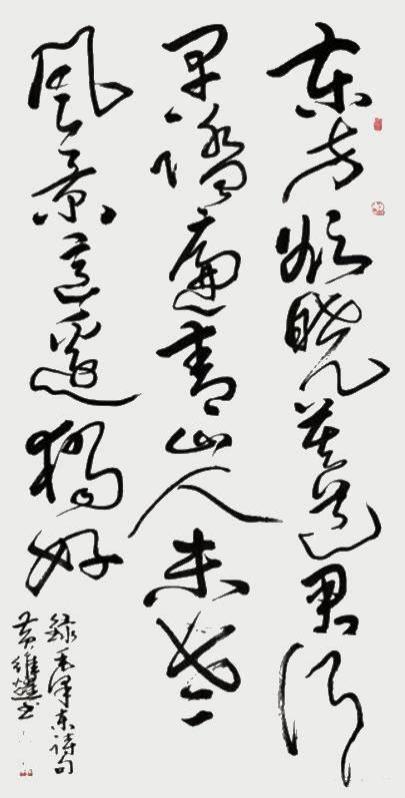 东方欲晓莫道君行
早踏遍青山人未老
風景這邊獨好
録毛泽东诗句
黄维书